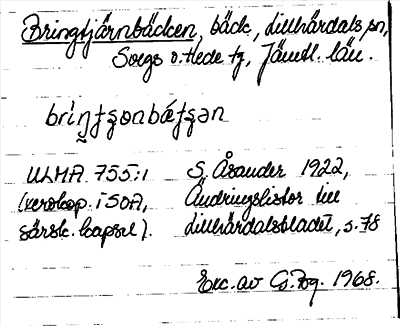 Bringtjärnbäcken, bäck, Lillhärdals sn,
Svegs o. Hede tg, Jämtl. län.
ULMA 755:1 S. Åsander 1922,
(verokop. i SOA, Ändringslistor till
särsk. kapsel). Lillhärdalsbladet, s. 78
Exc. av G. 1968.